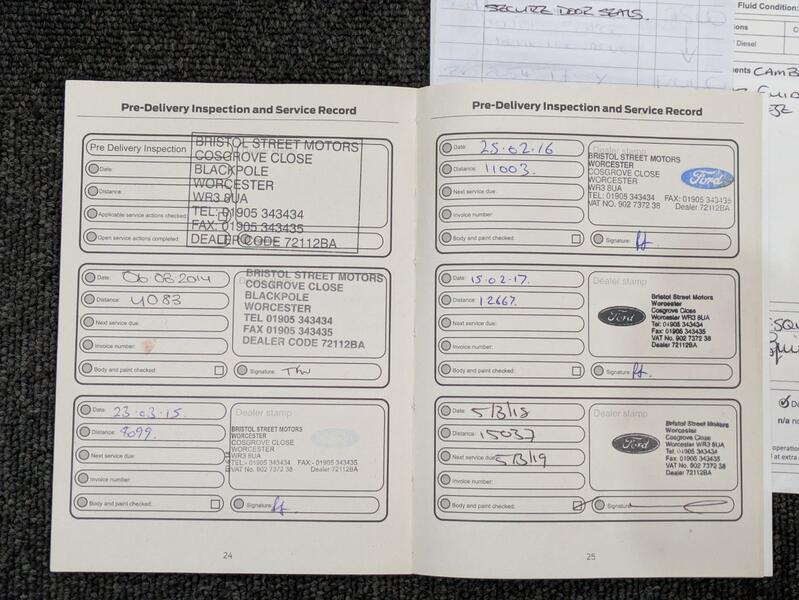 SECURE DOOR SEALS.
Fluid Condition:
Diesel
CAMB
Pre-Delivery Inspection and Service Record
Pre Delivery Inspection
Date:
Distance:
Applicable service actions checked:
Open service actions completed:
BRISTOL STREET MOTORS
COSGROVE CLOSE
BLACKPOLE
WORCESTER
WR3 8UA
TEL: 01905 343434
FAX: 01905 343435
DEALER CODE 72112BA
Date: 06.03.2014
Distance: 4083
Next service due:
Invoice number:
Body and paint checked:
BRISTOL STREET MOTORS
COSGROVE CLOSE
BLACKPOLE
WORCESTER
TEL 01905 343434
FAX 01905 343435
DEALER CODE 72112BA
Signature:
Date: 23.03.15.
Distance: 8099.
Next service due:
Invoice number:
Body and paint checked:
Dealer stamp
BRISTOL STREET MOTORS
WORCESTER
COSGROVE CLOSE
WORCESTER
WR3 8UA
TEL:- 01905 343434 FAX:- 01905 343435
VAT No. 902 7372 38 Dealer 72112BA
Signature:
24
Pre-Delivery Inspection and Service Record
Date: 25.02.16
Distance: 11003.
Next service due:
Invoice number:
Body and paint checked:
Dealer stamp
BRISTOL STREET MOTORS
WORCESTER
COSGROVE CLOSE
WORCESTER
WR3 8UA
TEL: 01905 343434 FAX: 01905 343435
VAT NO. 902 7372 38 Dealer 72112BA
Ford
Signature:
Date: 15.02.17.
Distance: 12667.
Next service due:
Invoice number:
Body and paint checked:
Ford
Bristol Street Motors
Worcester
Cosgrove Close
Worcester WR3 8UA
Tel: 01905 343434
Fax: 01905 343435
VAT No 902 7372 38
Dealer 72112BA
Signature:
Date: 5/3/18
Distance: 15037
Next service due: 5/3/19
Invoice number:
Body and paint checked:
Dealer stamp
Ford
Bristol Street Motors
Worcester
Cosgrove Close
Worcester WR3 8UA
Tel: 01905 343434
Fax: 01905 343435
VAT No 902 7372 38
Dealer 72112BA
Signature:
25
n/a